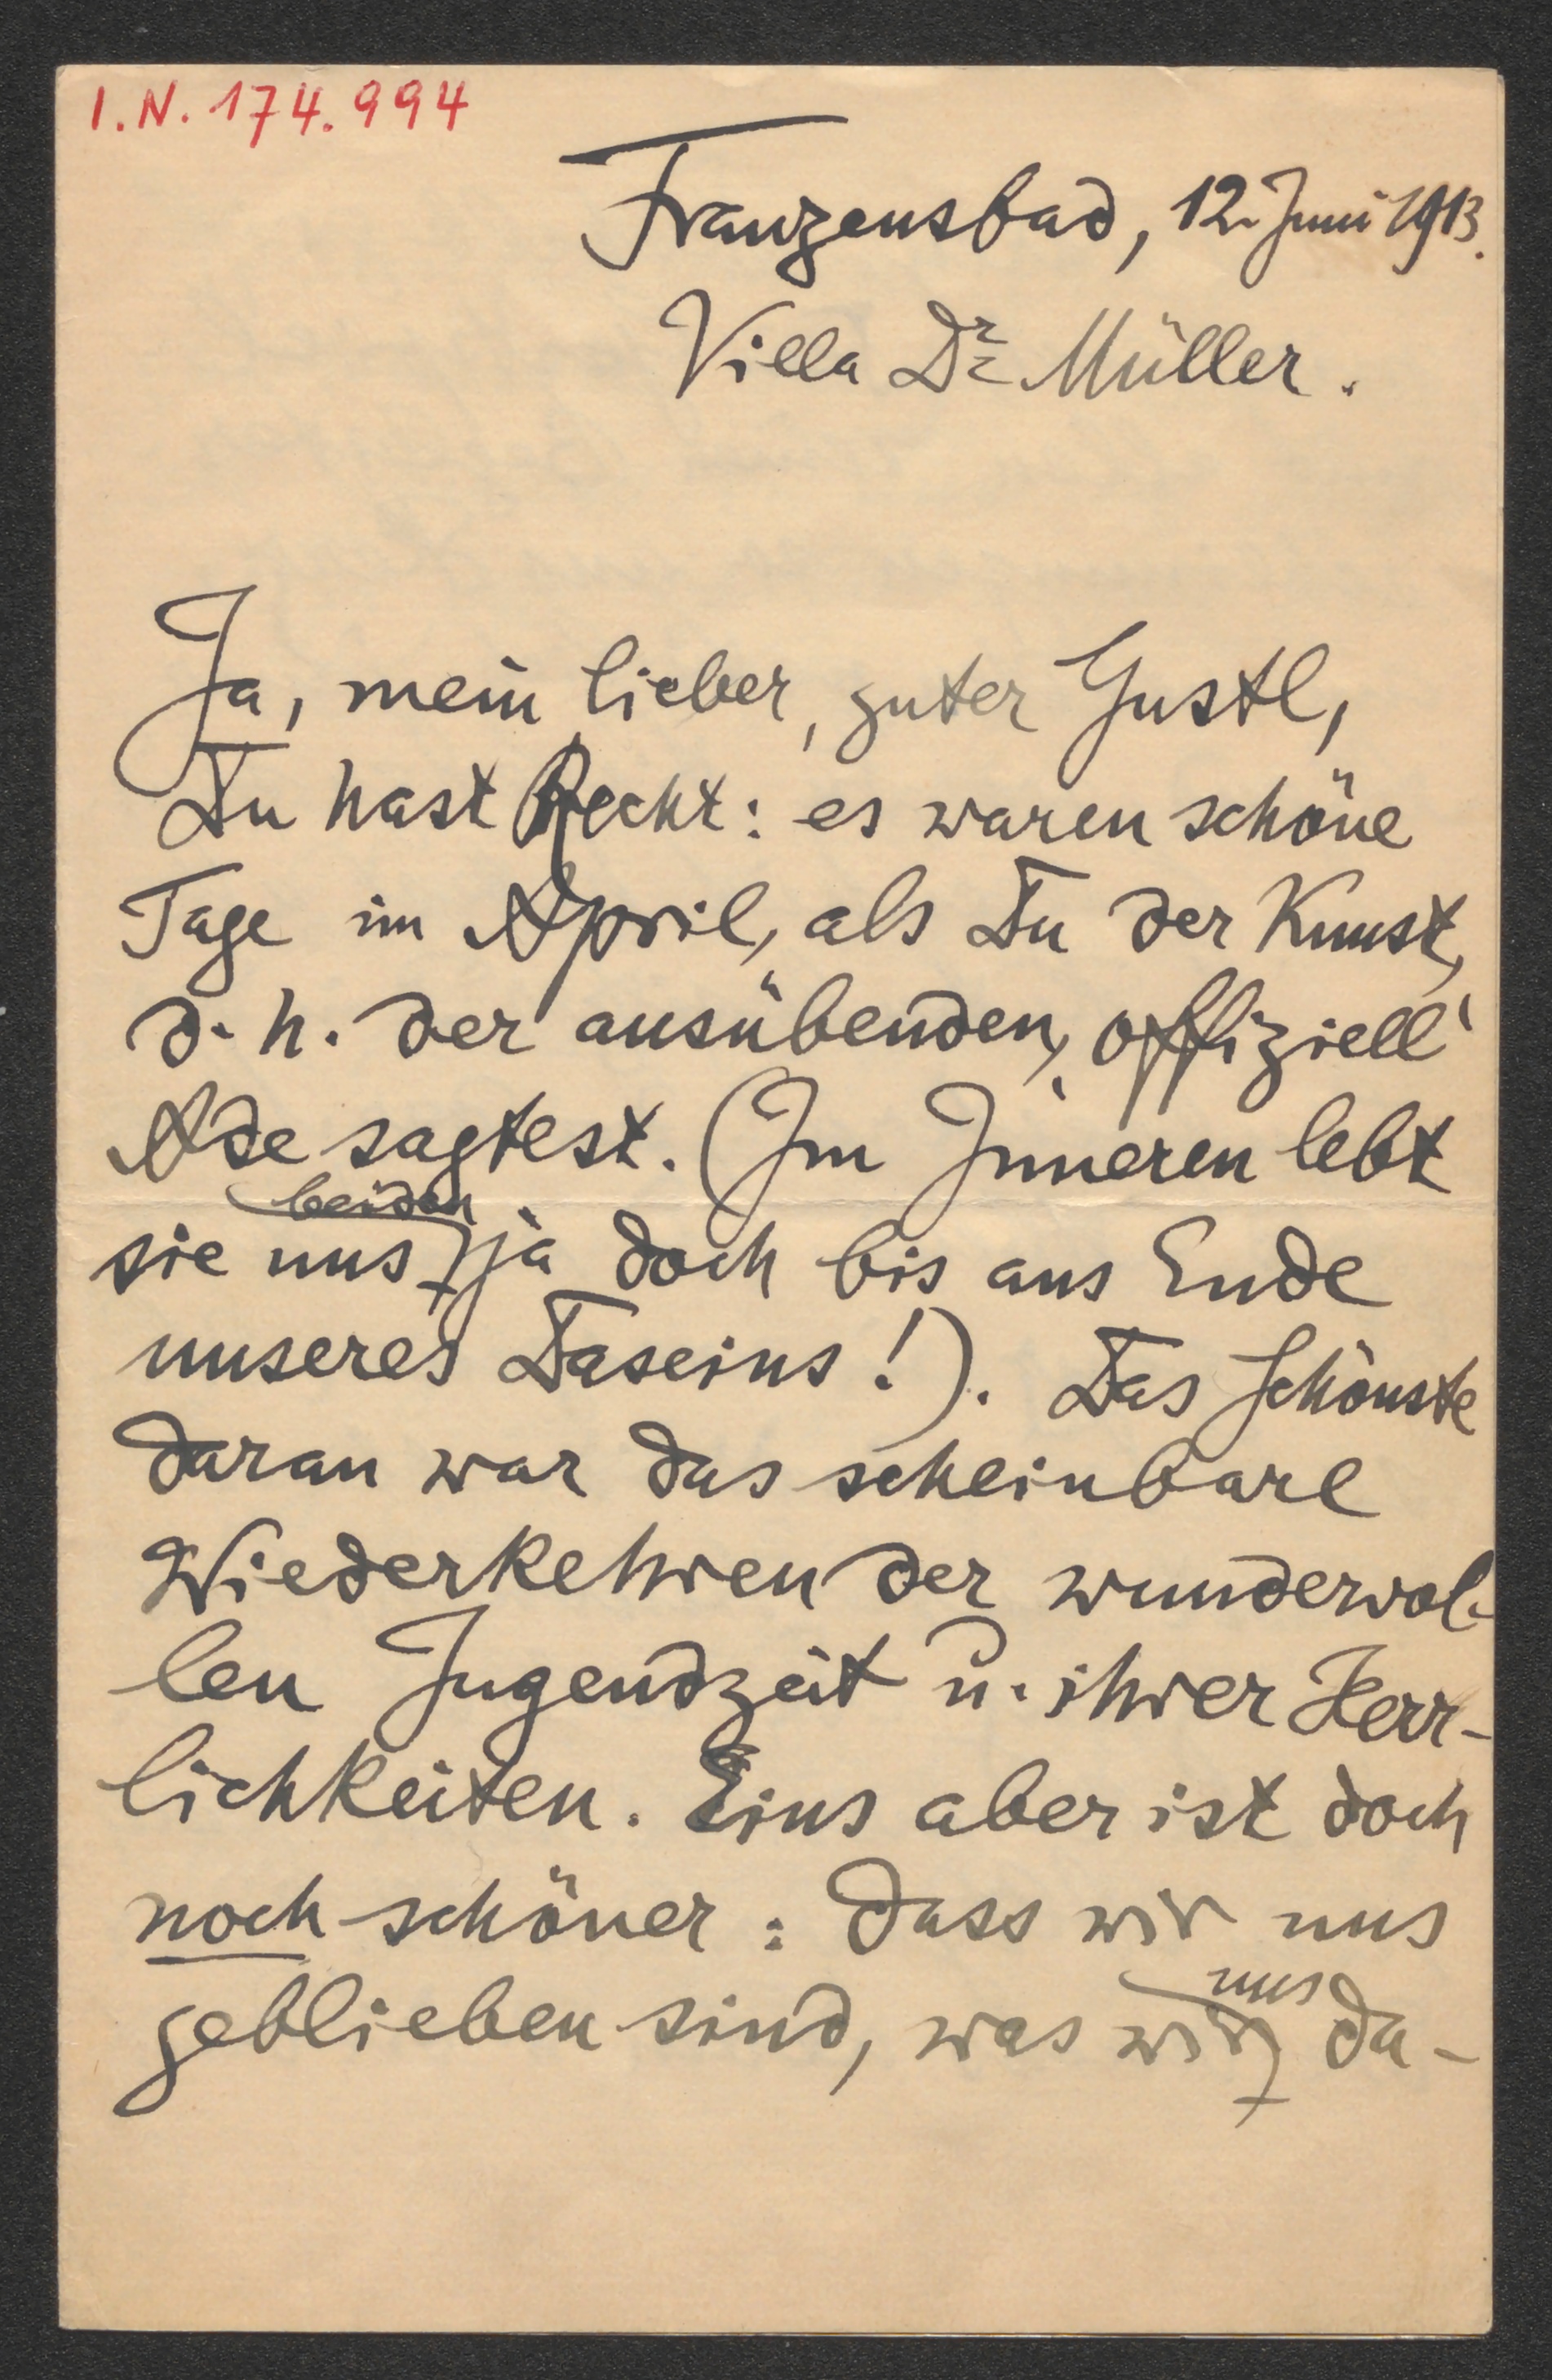 I.N. 174.994
Franzensbad, 12. Juni 1913.
Villa Dr. Müller.
Ja, mein lieber, guter Gustl,
Du hast Recht: es waren schöne
Tage im April, als Du der Kunst,
d. h. der ausübenden, „offiziell“
Ade sagtest. (Im Inneren lebt
sie uns beiden ja doch bis ans Ende
unseres Daseins!). Das Schönste
daran war das scheinbare
Wiederkehren der wundervol-
len Jugendzeit u. ihrer Herr-
lichkeiten. Eins aber ist doch
noch schöner: dass wir uns
geblieben sind, was wir uns da-